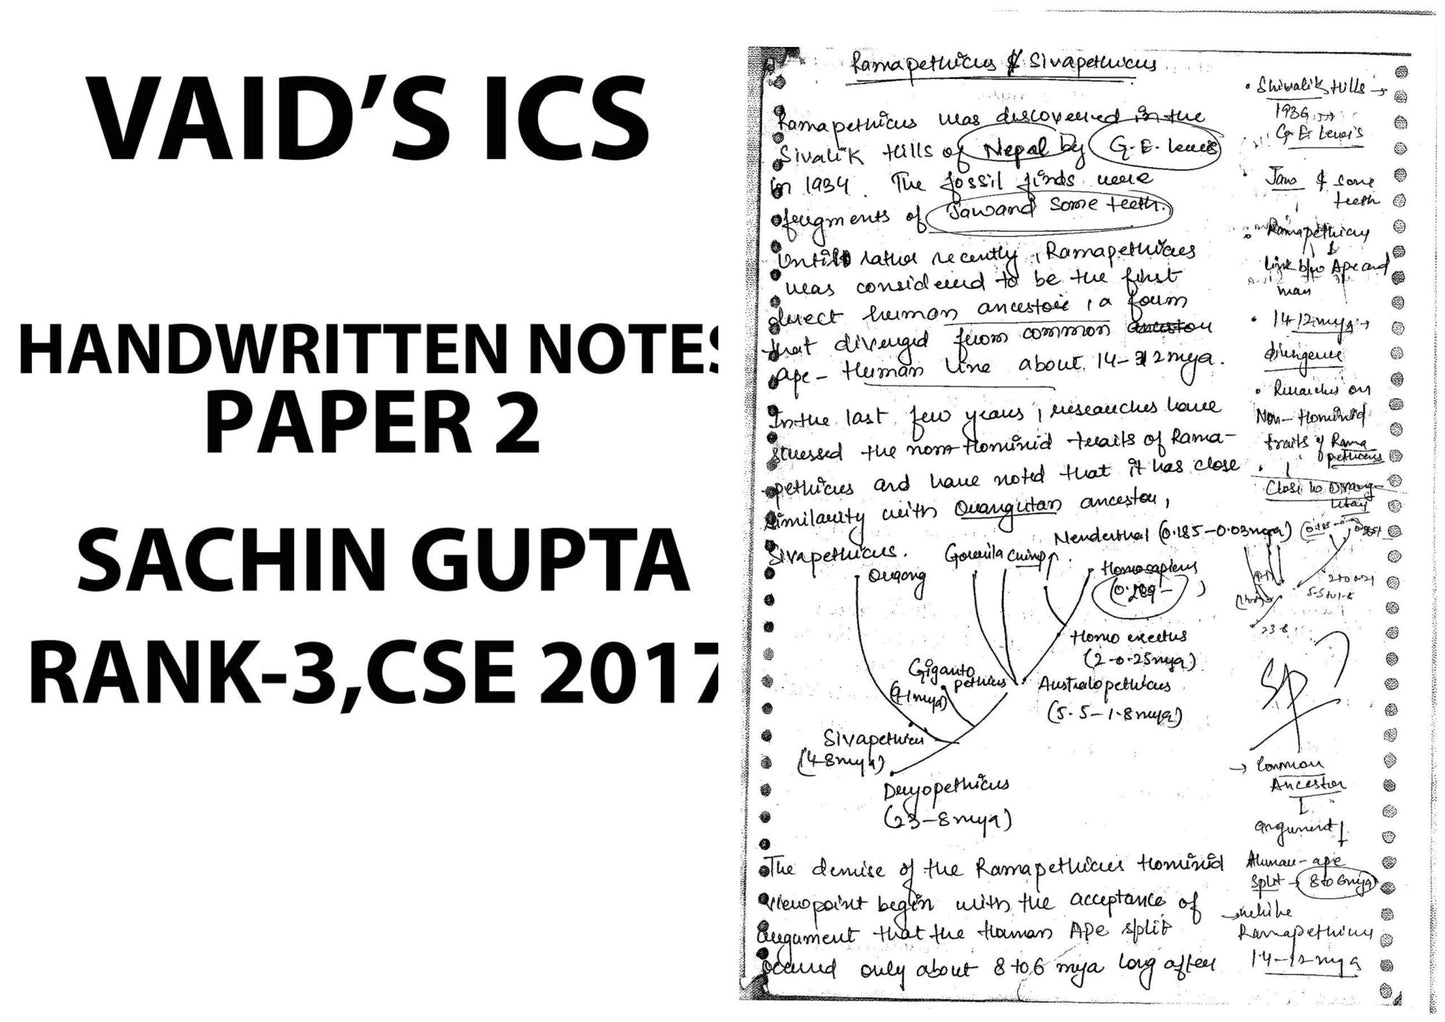 VAID'S ICS
HANDWRITTEN NOTES
PAPER 2
SACHIN GUPTA
RANK-3,CSE 2017
Ramapethicus & Sivapethicus
Ramapethicus was discovered in the
Sivalik Hills of Nepal by G.E. Lewis
in 1934. The fossil finds were
fragments of Jaw and some teeth.
Until rather recently, Ramapethicus
was considered to be the first
direct human ancestor, a form
that diverged from common
ape-Human line about 14-12mya.
In the last few years, researches have
stressed the non-Hominid traits of Rama-
pethicus and have noted that it has close
similarity with Orangutan ancestor,
Sivapethicus.
Gorilla Chimp
Nenderthal (0.185-0.03mya)
Homosapiens
Homo erectus
(2-0.25mya)
Giganto
pethicus
(9-1mya)
Australopethicus
(5.5-1.8mya)
Sivapethicus
Dryopethicus
(23-8mya)
The demise of the Ramapethicus Hominid
viewpoint begin with the acceptance of
argument that the Human Ape split
occured only about 8 to 6 mya long after
• Shiwalik Hills →
1936
G.E. Lewis
• Jaw & some
teeth
• Ramapethicus
link b/w Ape and
man
• 14-12mya →
divergence
• Researches on
Non-Hominid
traits of Rama
pethicus
Close to Orang-
utan
→ Common
Ancestor
argument
Human-ape
split → 8 to 6mya
→ while
Ramapethicus
14-12 mya